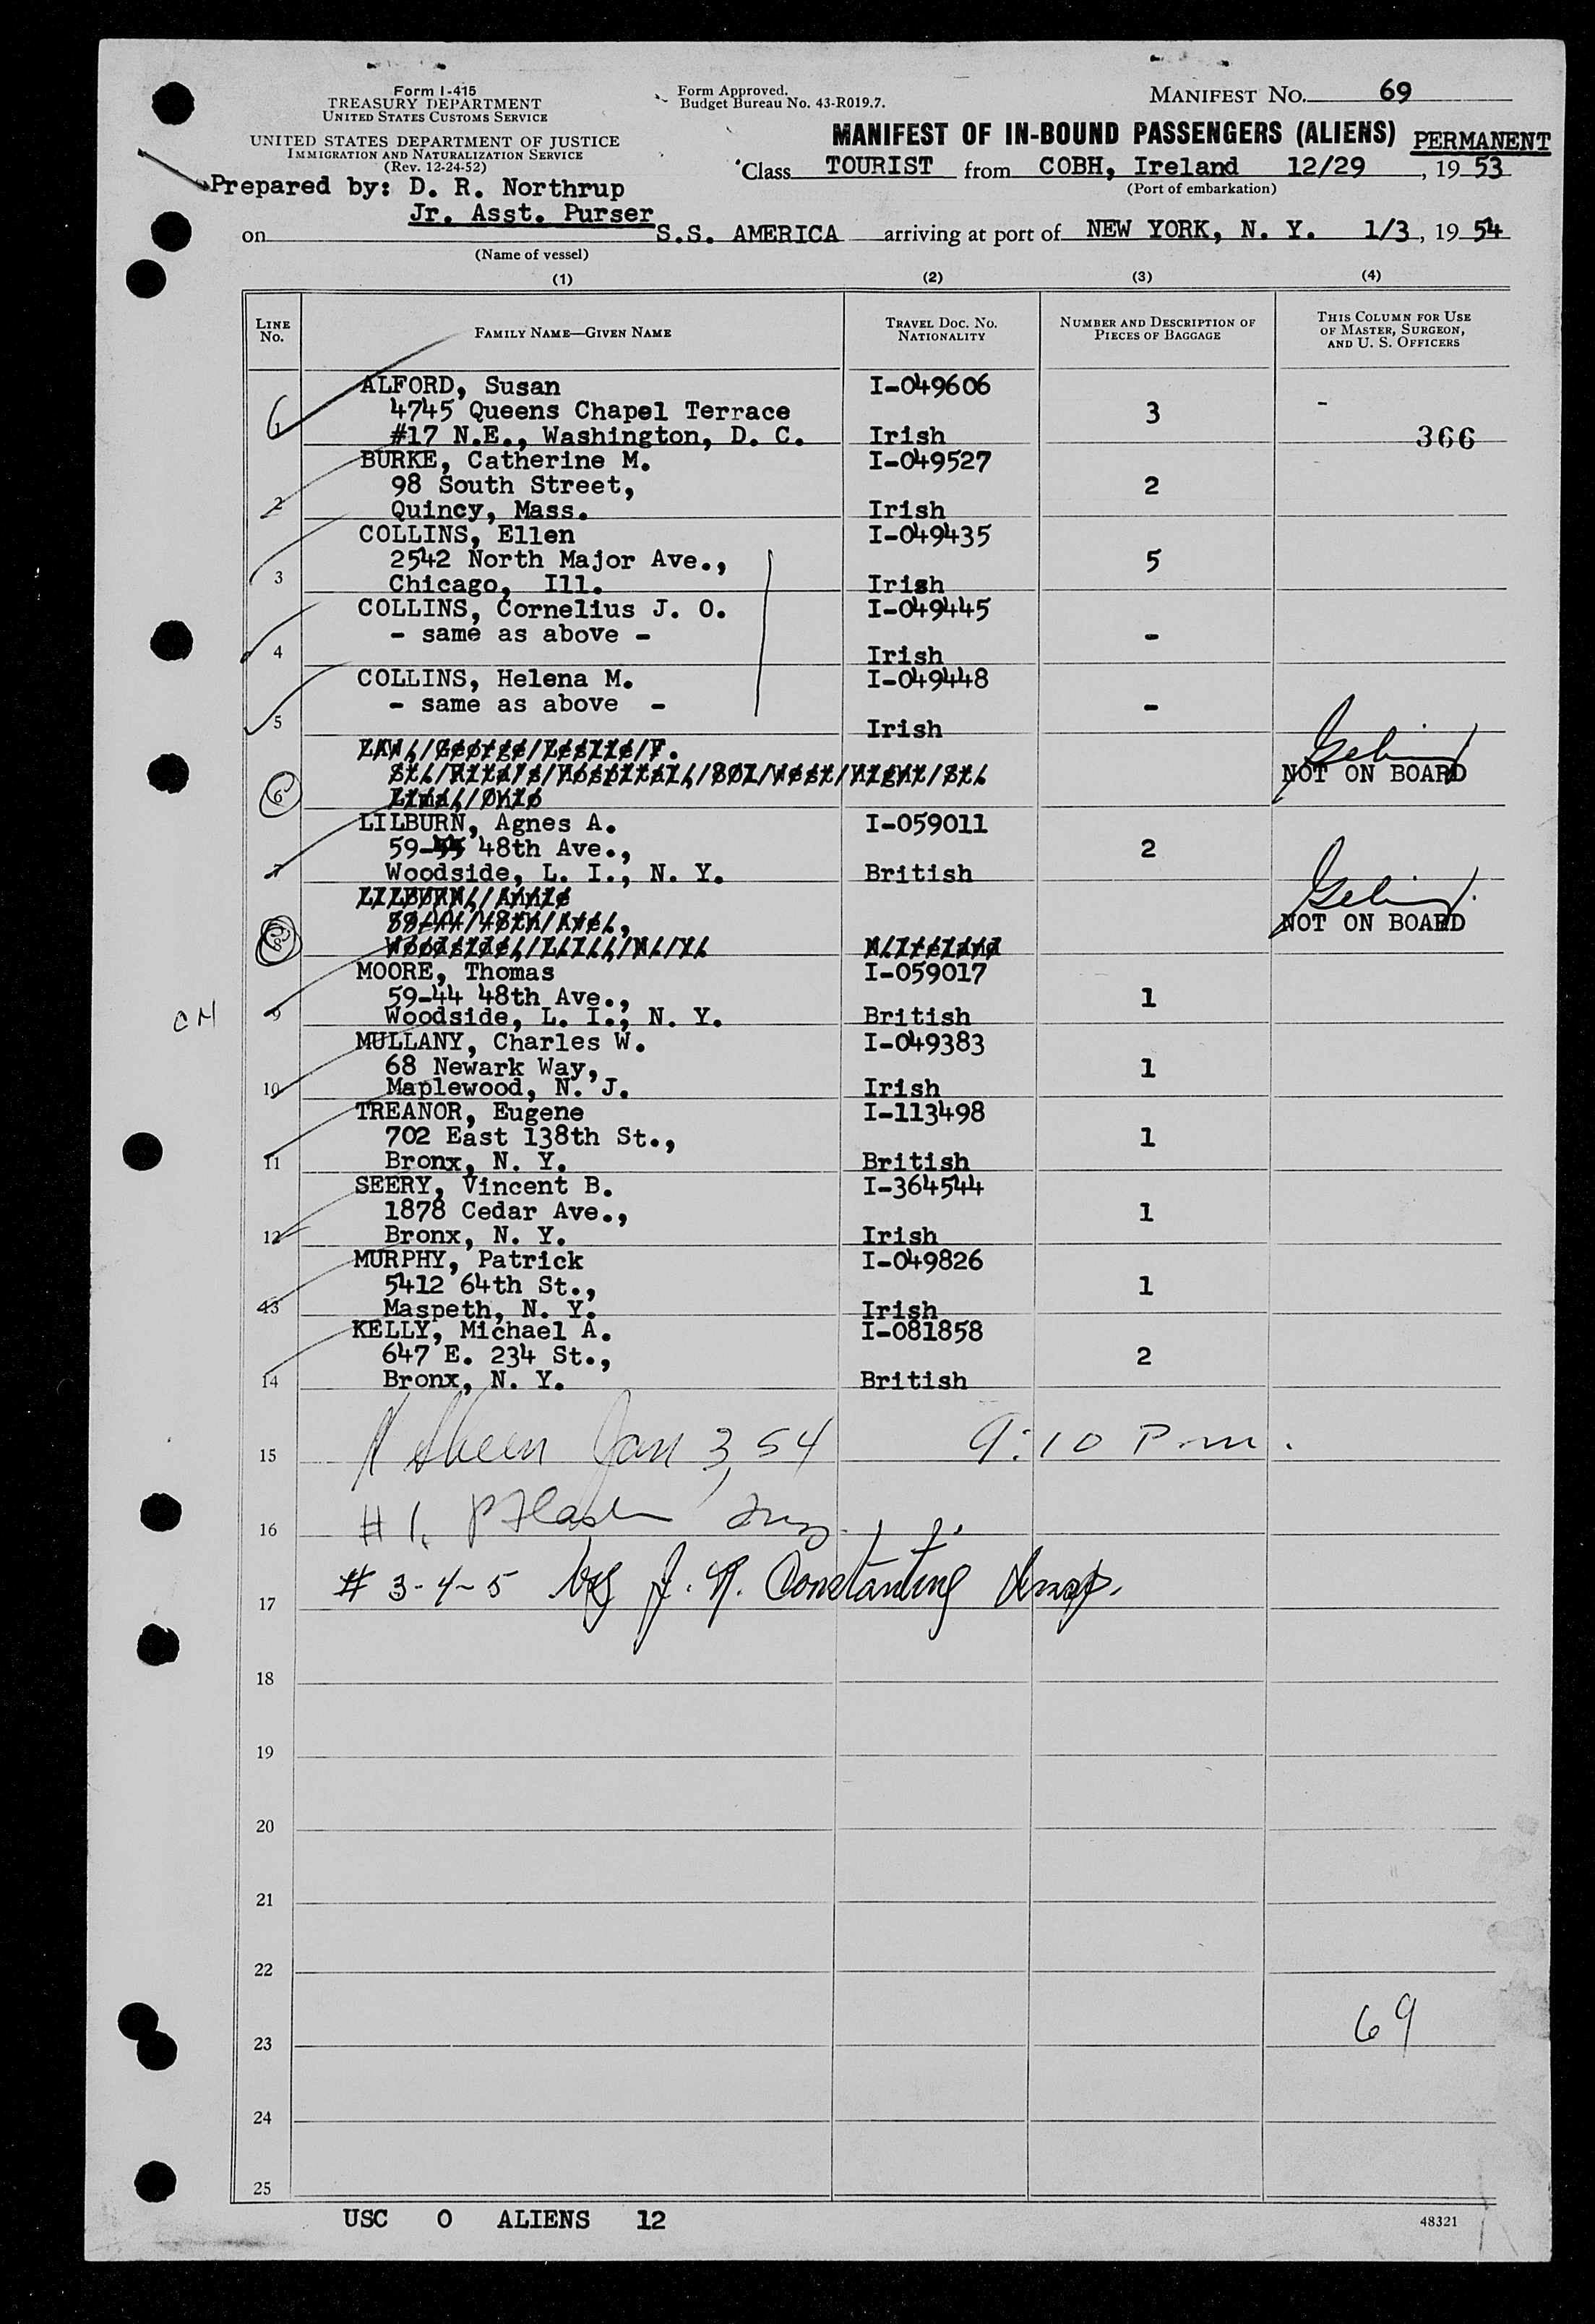 Form I-415
TREASURY DEPARTMENT
UNITED STATES CUSTOMS SERVICE
UNITED STATES DEPARTMENT OF JUSTICE
IMMIGRATION AND NATURALIZATION SERVICE
(Rev. 12-24-52)
Form Approved.
Budget Bureau No. 43-R019.7.
MANIFEST NO. 69
MANIFEST OF IN-BOUND PASSENGERS (ALIENS) PERMANENT
Class TOURIST from COBH, Ireland 12/29, 19 53
(Port of embarkation)
Prepared by: D. R. Northrup
Jr. Asst. Purser
on S.S. AMERICA arriving at port of NEW YORK, N. Y. 1/3, 19 54
(Name of vessel)
(1) (2) (3) (4)
LINE No. FAMILY NAME—GIVEN NAME TRAVEL DOC. NO. NATIONALITY NUMBER AND DESCRIPTION OF PIECES OF BAGGAGE THIS COLUMN FOR USE OF MASTER, SURGEON, AND U. S. OFFICERS
ALFORD, Susan I-049606
1 4745 Queens Chapel Terrace 3 -
#17 N.E., Washington, D. C. Irish 366
BURKE, Catherine M. I-049527
98 South Street, 2
2 Quincy, Mass. Irish
COLLINS, Ellen I-049435
2542 North Major Ave., 5
3 Chicago, Ill. Irish
COLLINS, Cornelius J. O. I-049445
- same as above - -
4 Irish
COLLINS, Helena M. I-049448
- same as above - -
5 Irish
LAW, George Leslie F.
St. Rita's Hospital, 801 West High St. NOT ON BOARD
6 Lima, Ohio
LILBURN, Agnes A. I-059011
59- 48th Ave., 2
7 Woodside, L. I., N. Y. British
LILBURN, Annie
59-44 48th Ave., NOT ON BOARD
8 Woodside, L.I., N. Y. N.Ireland
MOORE, Thomas I-059017
59-44 48th Ave., 1
CM 9 Woodside, L. I., N. Y. British
MULLANY, Charles W. I-049383
68 Newark Way, 1
10 Maplewood, N. J. Irish
TREANOR, Eugene I-113498
702 East 138th St., 1
11 Bronx, N. Y. British
SEERY, Vincent B. I-364544
1878 Cedar Ave., 1
12 Bronx, N. Y. Irish
MURPHY, Patrick I-049826
5412 64th St., 1
13 Maspeth, N. Y. Irish
KELLY, Michael A. I-081858
647 E. 234 St., 2
14 Bronx, N. Y. British
15 Jan 3, 54 9:10 P.m.
16 #1.
17 # 3-4-5 by J. Constantine
18
19
20
21
22
69
23
24
25
USC 0 ALIENS 12
48321